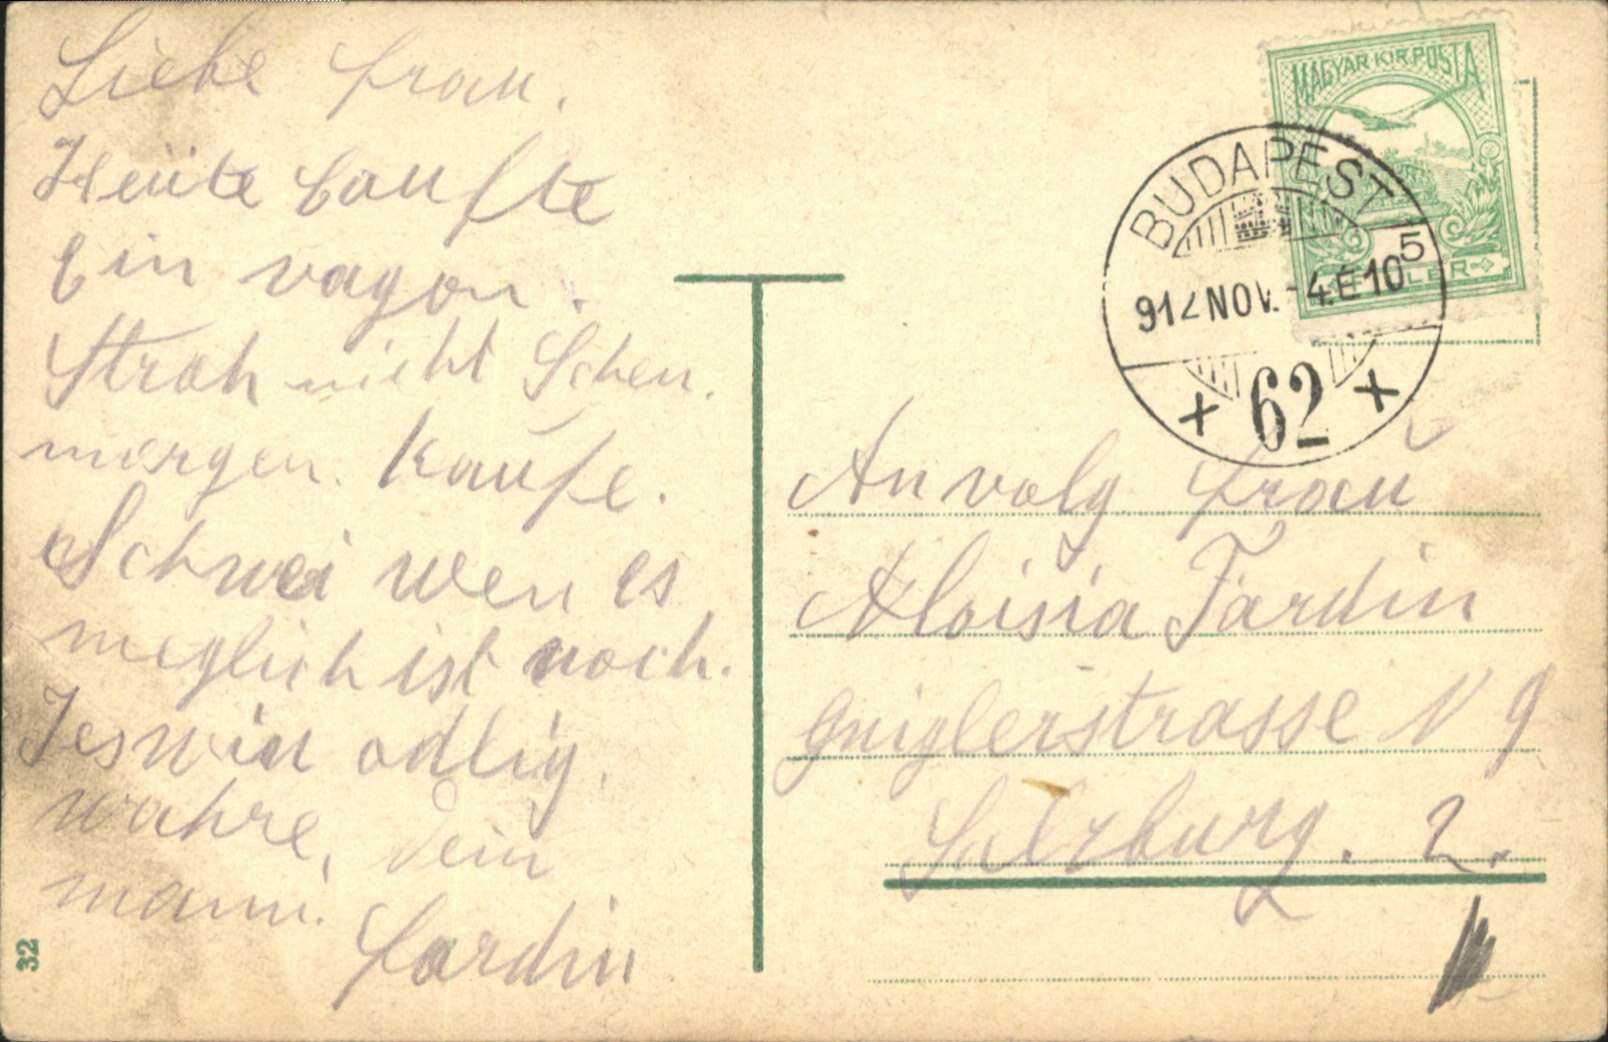 Liebe Frau.
Heute kaufte
Ein vagon.
Stroh nicht Schen.
morgen. kaufe.
Schwei wen es
meglich ist noch.
wahre, Dein
mann.
Fardin
32
MAGYAR KIR. POSTA
FILLÉR
BUDAPEST
912 NOV. -4. É 10
5
62
An volg Frau
Aloisia Fardin
Gniglerstrasse N 9
Salzburg. 2.